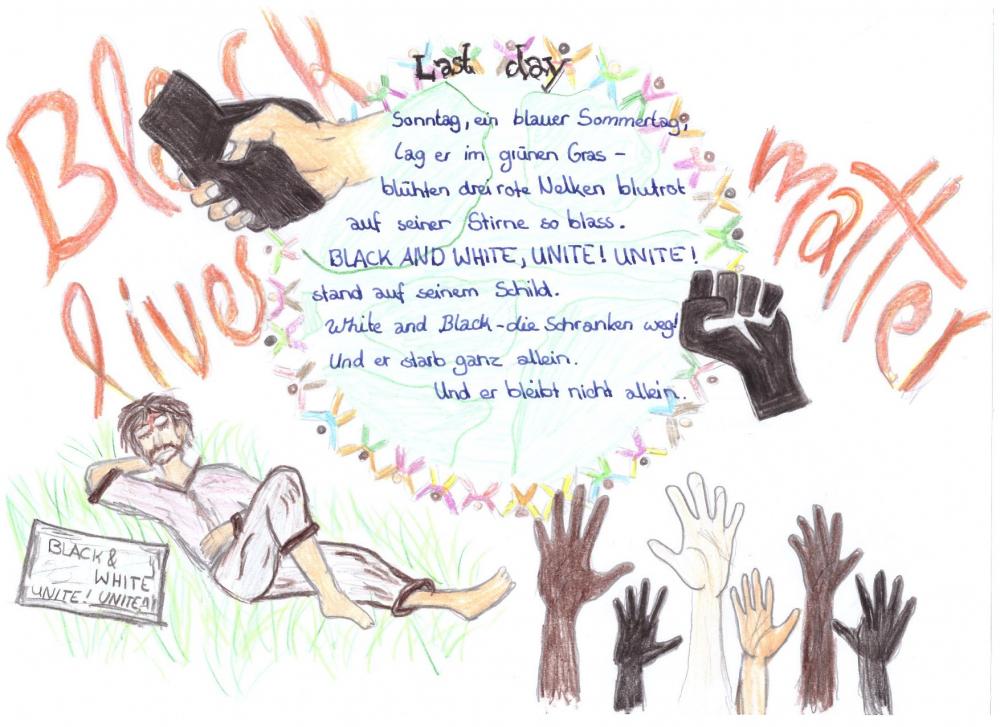 Black
lives
matter
Last day
Sonntag, ein blauer Sommertag,
lag er im grünen Gras –
blühten drei rote Nelken blutrot
auf seiner Stirne so blass.
BLACK AND WHITE, UNITE! UNITE!
stand auf seinem Schild.
White and Black – die Schranken weg!
Und er starb ganz allein.
Und er bleibt nicht allein.
BLACK &
WHITE
UNITE! UNITE!